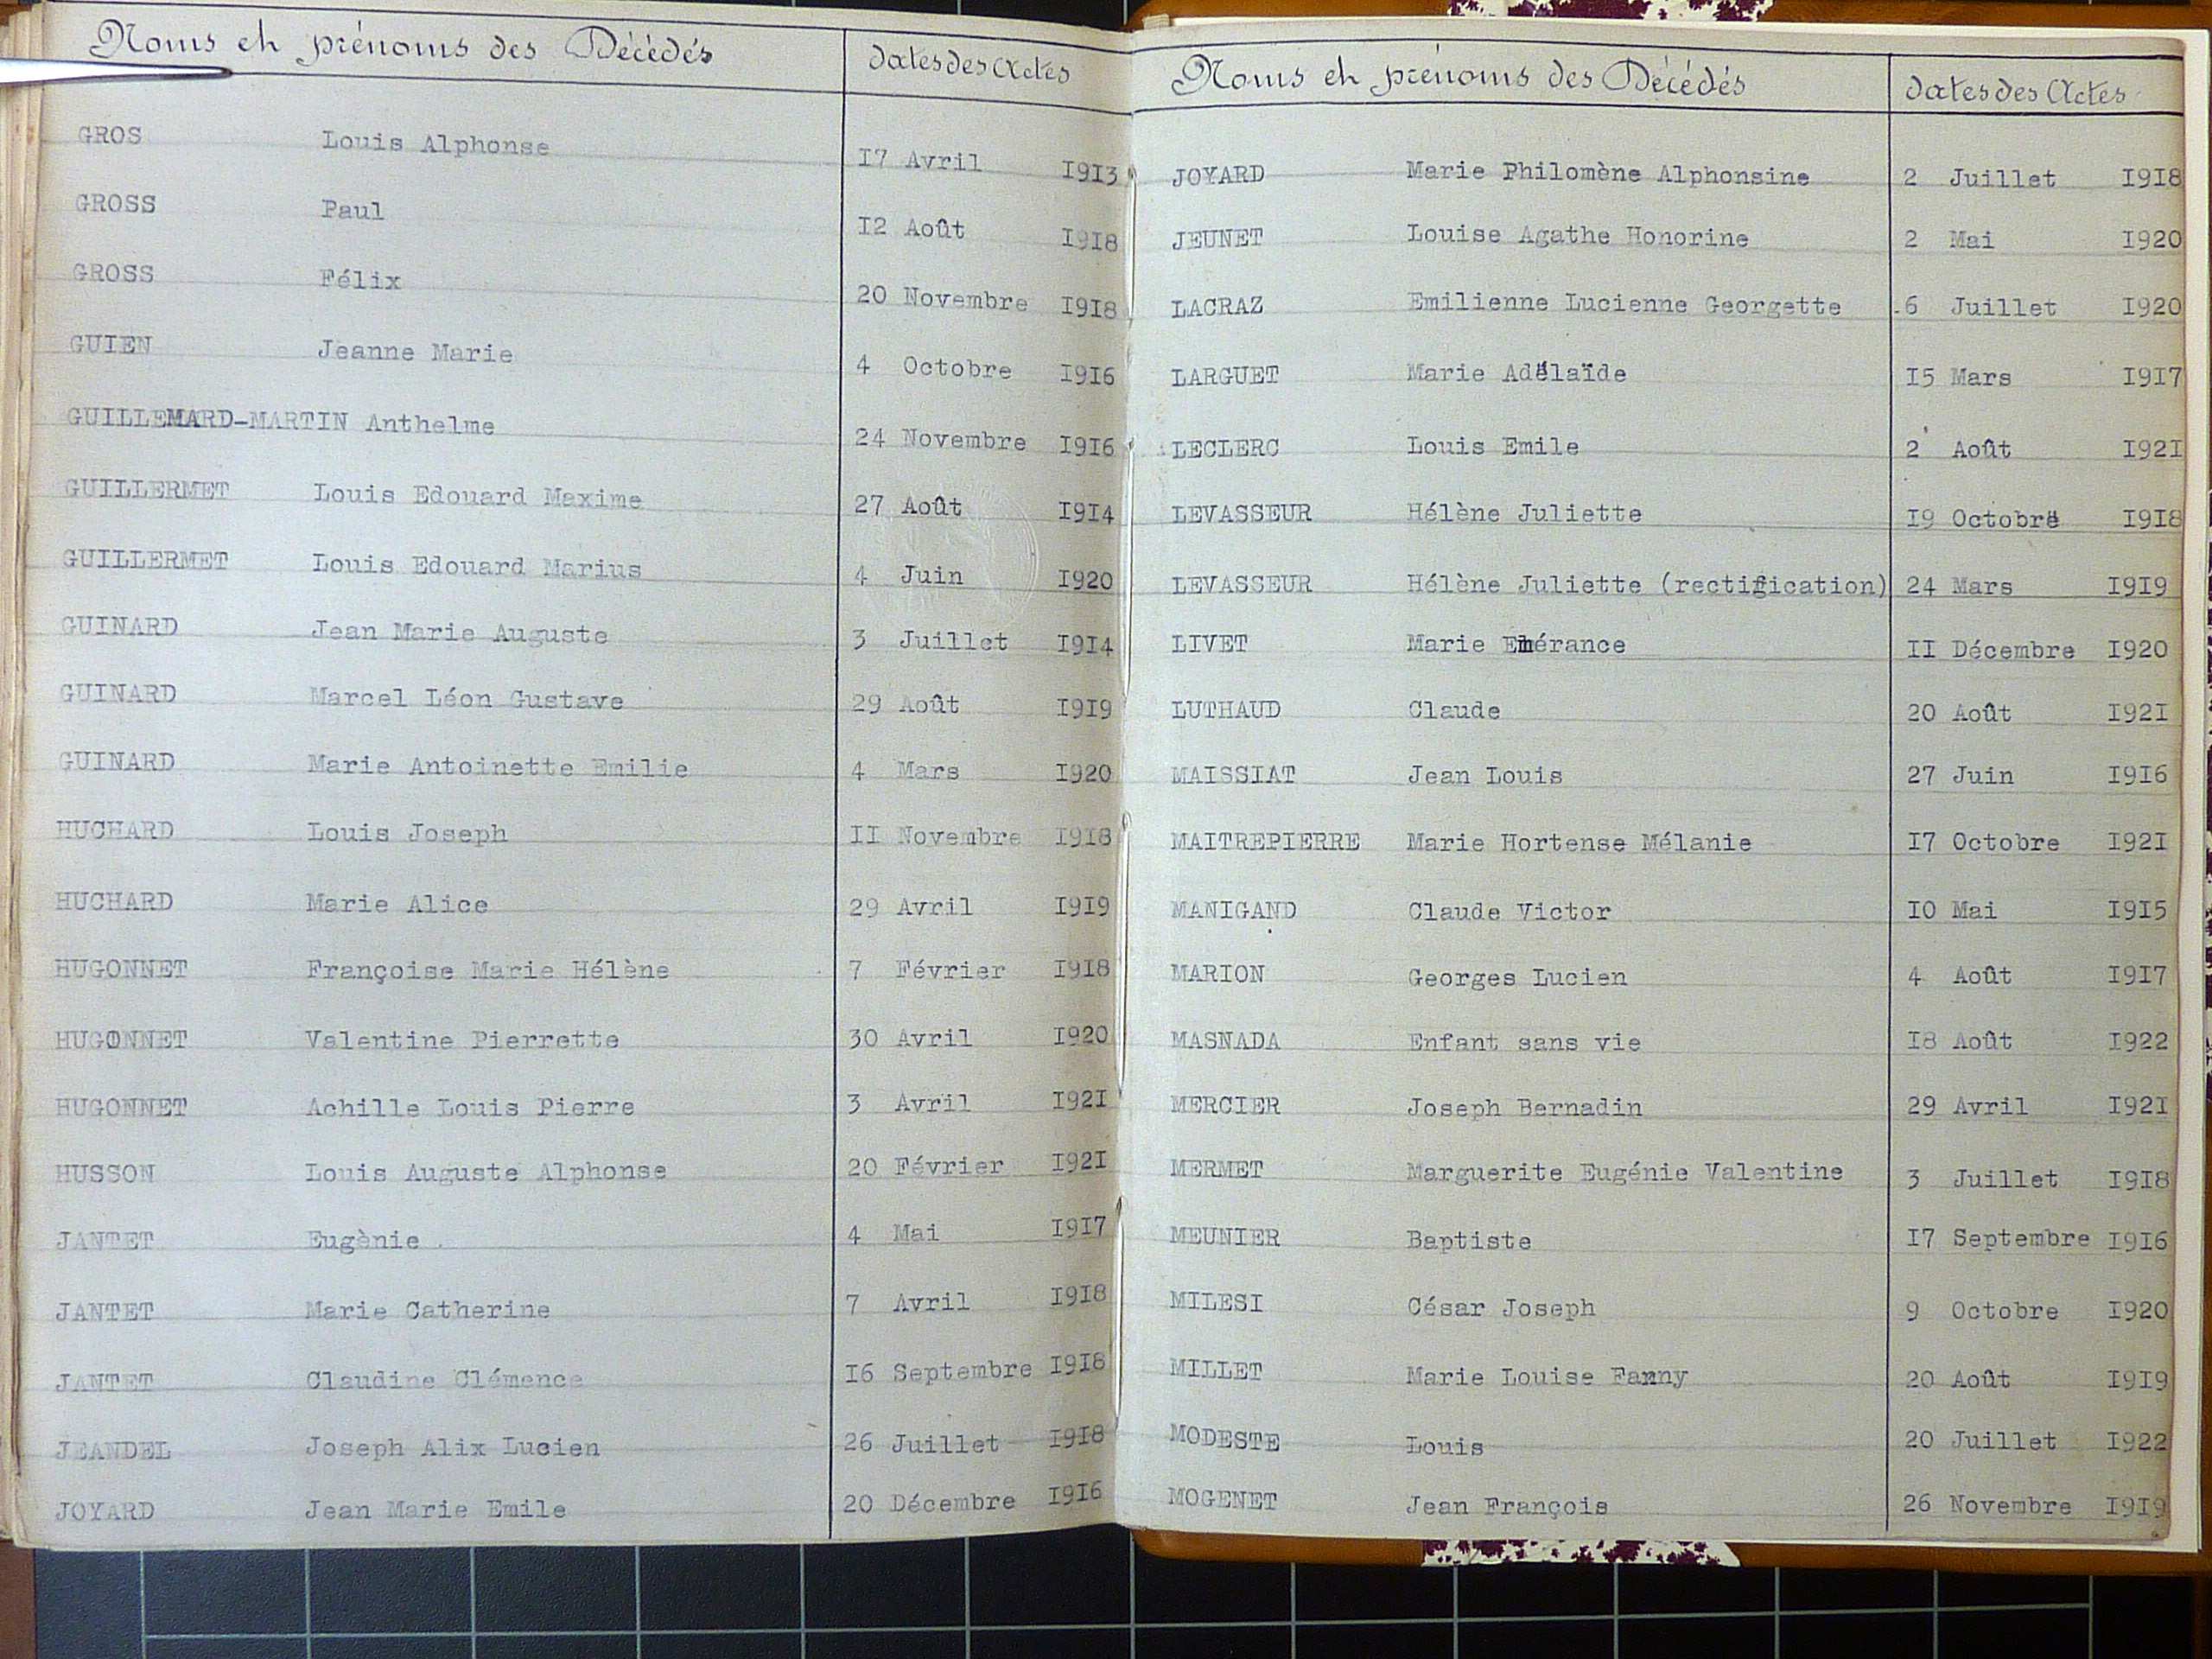 Noms et prénoms des Décédés dates des Actes
GROS Louis Alphonse 17 Avril 1913
GROSS Paul 12 Août 1918
GROSS Félix 20 Novembre 1918
GUIEN Jeanne Marie 4 Octobre 1916
GUILLEMARD-MARTIN Anthelme 24 Novembre 1916
GUILLERMET Louis Edouard Maxime 27 Août 1914
GUILLERMET Louis Edouard Marius 4 Juin 1920
GUINARD Jean Marie Auguste 3 Juillet 1914
GUINARD Marcel Léon Gustave 29 Août 1919
GUINARD Marie Antoinette Emilie 4 Mars 1920
HUCHARD Louis Joseph 11 Novembre 1918
HUCHARD Marie Alice 29 Avril 1919
HUGONNET Françoise Marie Hélène 7 Février 1918
HUGONNET Valentine Pierrette 30 Avril 1920
HUGONNET Achille Louis Pierre 3 Avril 1921
HUSSON Louis Auguste Alphonse 20 Février 1921
JANTET Eugènie 4 Mai 1917
JANTET Marie Catherine 7 Avril 1918
JANTET Claudine Clémence 16 Septembre 1918
JEANDEL Joseph Alix Lucien 26 Juillet 1918
JOYARD Jean Marie Emile 20 Décembre 1916
Noms et prénoms des Décédés dates des Actes
JOYARD Marie Philomène Alphonsine 2 Juillet 1918
JEUNET Louise Agathe Honorine 2 Mai 1920
LACRAZ Emilienne Lucienne Georgette 6 Juillet 1920
LARGUET Marie Adélaïde 15 Mars 1917
LECLERC Louis Emile 2 Août 1921
LEVASSEUR Hélène Juliette 19 Octobre 1918
LEVASSEUR Hélène Juliette (rectification) 24 Mars 1919
LIVET Marie 11 Décembre 1920
LUTHAUD Claude 20 Août 1921
MAISSIAT Jean Louis 27 Juin 1916
MAITREPIERRE Marie Hortense Mélanie 17 Octobre 1921
MANIGAND Claude Victor 10 Mai 1915
MARION Georges Lucien 4 Août 1917
MASNADA Enfant sans vie 18 Août 1922
MERCIER Joseph Bernadin 29 Avril 1921
MERMET Marguerite Eugénie Valentine 3 Juillet 1918
MEUNIER Baptiste 17 Septembre 1916
MILESI César Joseph 9 Octobre 1920
MILLET Marie Louise Fanny 20 Août 1919
MODESTE Louis 20 Juillet 1922
MOGENET Jean François 26 Novembre 1919